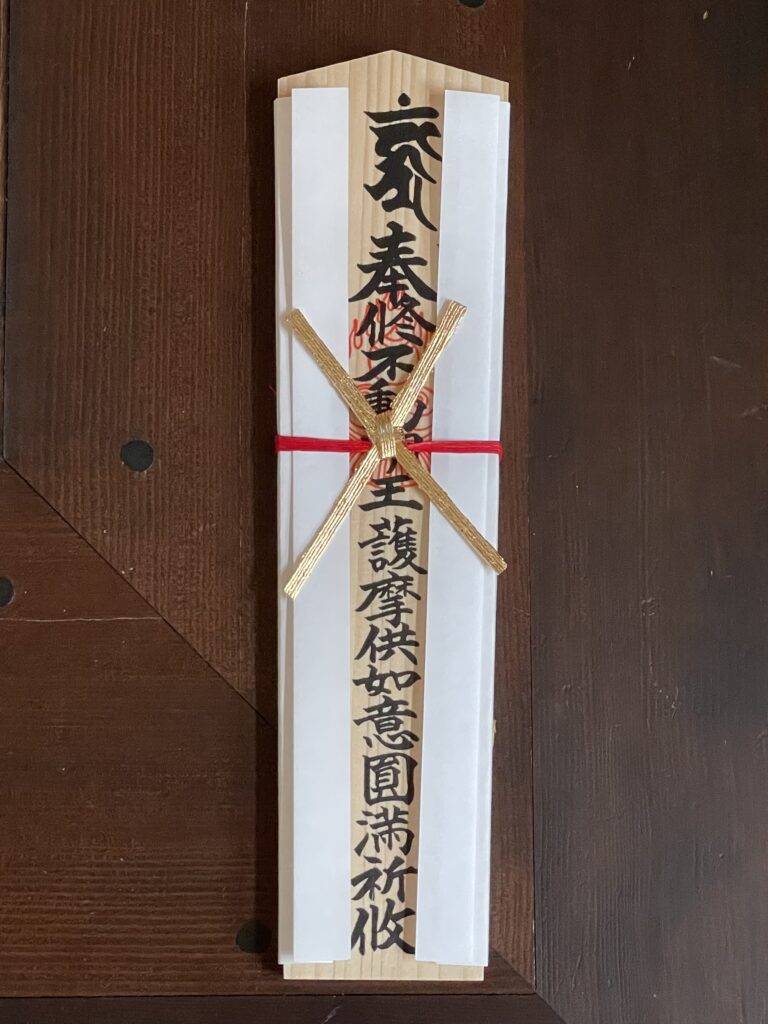 奉修不動明王護摩供如意圓満祈攸